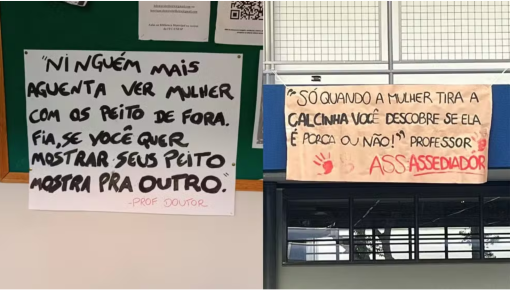 "NINGUÉM MAIS
AGUENTA VER MULHER
COM OS PEITO DE FORA.
FIA, SE VOCÊ QUER
MOSTRAR SEUS PEITO
MOSTRA PRA OUTRO."
-PROF DOUTOR-
"SÓ QUANDO A MULHER TIRA A
CALCINHA VOCÊ DESCOBRE SE ELA
É PORCA OU NÃO!" PROFESSOR
ASS: ASSEDIADOR